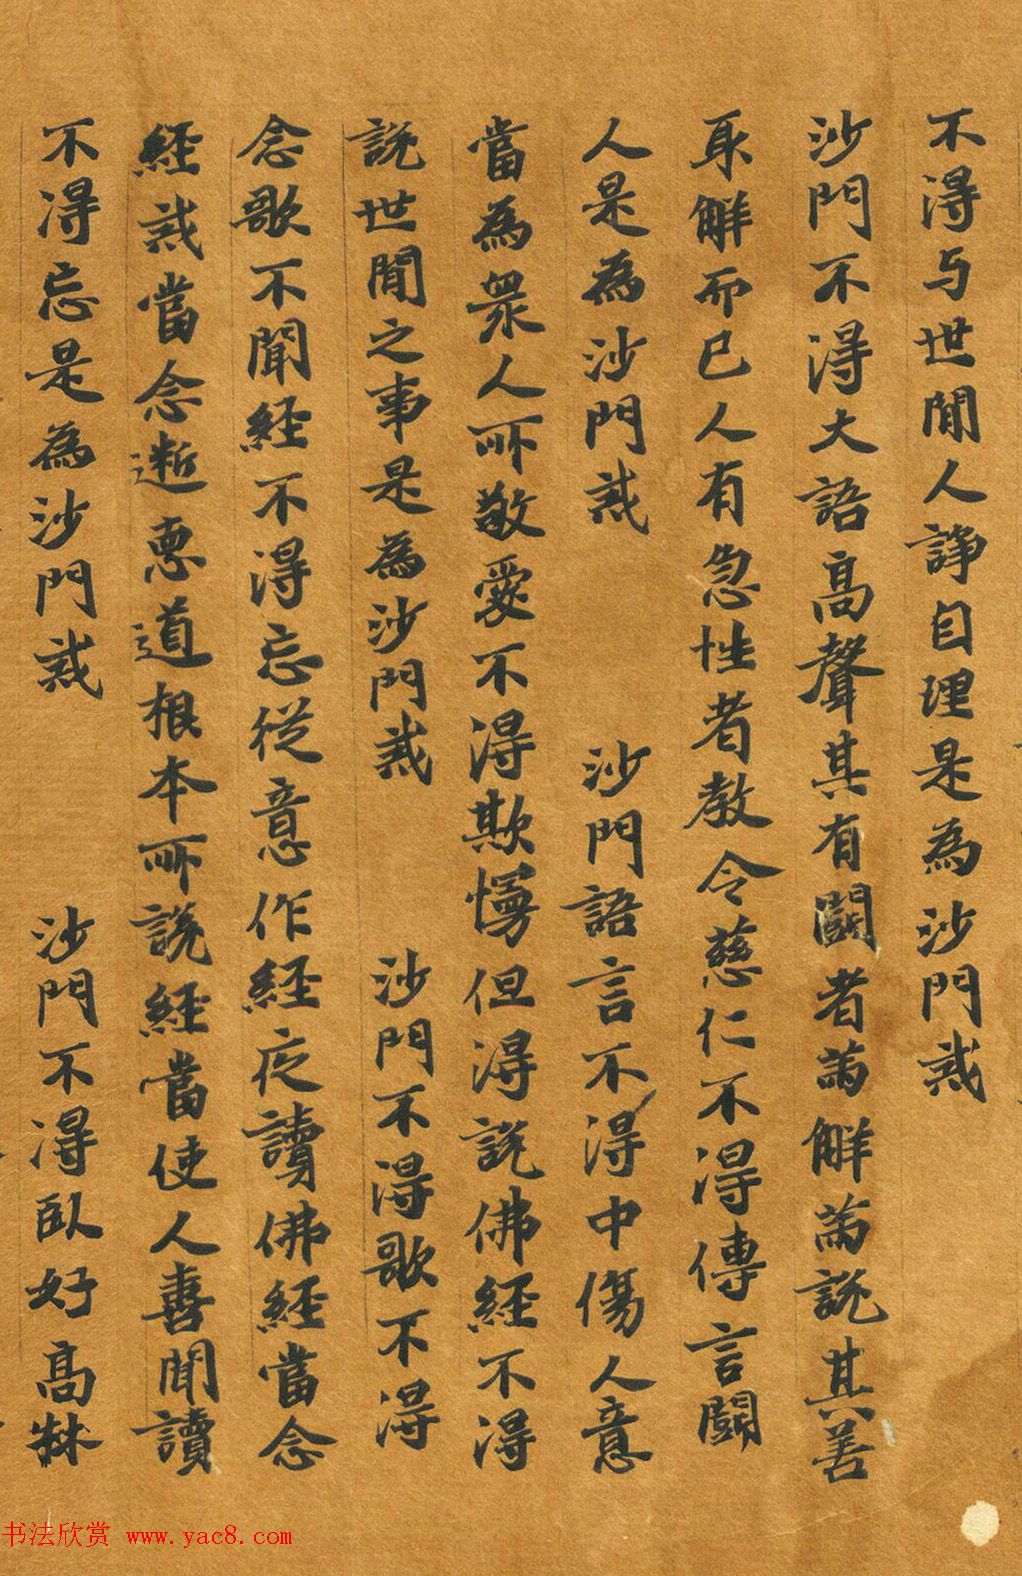 不得与世閒人諍自理是為沙門戒
沙門不得大語髙聲其有鬪者為解為說其善
取解而已人有急性者教令慈仁不得傳言鬪
人是為沙門戒　　沙門語言不得中傷人意
當為眾人所敬愛不得欺慢但得說佛經不得
說世閒之事是為沙門戒　　沙門不得歌不得
念歌不聞經不得忘從意作經夜讀佛經當念
經戒當念逝惠道根本所說經當使人喜聞讀
不得忘是為沙門戒　　沙門不得臥好髙牀
书法欣赏 www.yac8.com